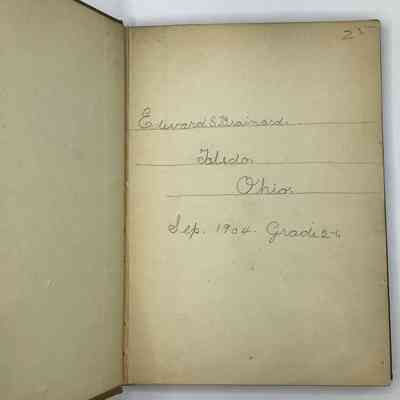 25
Edward S. Brainard.
Toledo,
Ohio.
Sep. 1904. Grade 2-